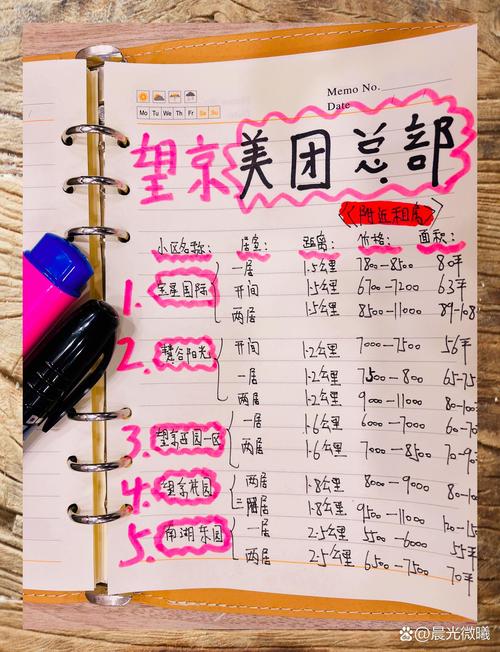 Memo No.
Mo Tu We Th Fr Sa Su
Date
望京美团总部
《附近租房》
小区名称: 居室: 距离: 价格: 面积:
1. 宝星国际 一居 1.5公里 7800—8500 80平
开间 1.5公里 6700—7200 63平
两居 1.5公里 8500—11000 89-108
2. 慧谷阳光 开间 1.2公里 7000—7500 56平
一居 1.2公里 7500—800 65-75
两居 1.2公里 9000—11000 80-100
3. 望京西园一区 一居 1.6公里 6000—7000 60-70
两居 1.6公里 7000—8500 70-90
4. 望京花园 两居 1.8公里 8000—9000 80-100
三居 1.8公里 9500—11000 120-150
5. 南湖东园 一居 2.5公里 5500—6000 55平
两居 2.5公里 6500—7500 70平
@晨光微曦